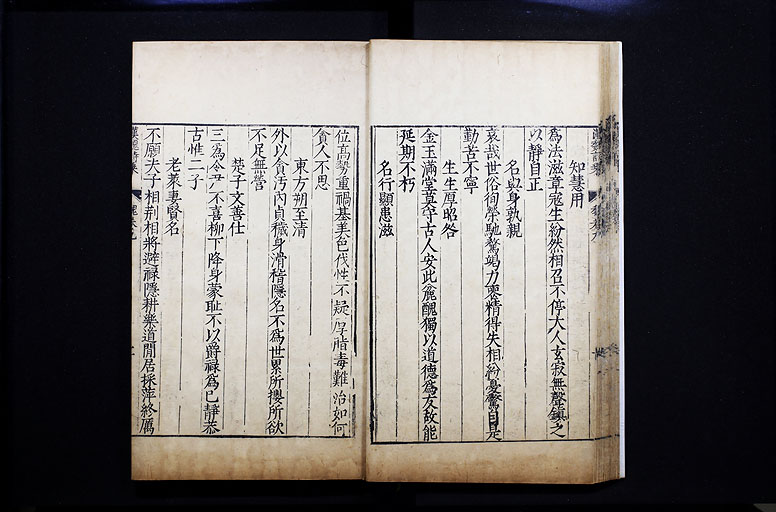 知慧用
爲法滋章寇生紛然相召不停大人玄寂無聲鎮之
以靜自正
名與身孰親
哀哉世俗徇榮馳騖竭力喪精得失相紛憂驚自是
勤苦不寧
生生厚昭咎
金玉滿堂莫守古人安此麄醜獨以道德爲友故能
延期不朽
名行顯患滋
位高勢重禍基美色伐性不疑厚脂毒難治如何
貪人不思
東方朔至清
外以貪汚內貞穢身滑稽隱名不爲世累所攖所欲
不足無營
楚子文善仕
三爲令尹不喜柳下降身蒙恥不以爵祿爲已靜恭
古惟二子
老萊妻賢名
不願夫子相荆相將避祿隱耕樂道閒居採萍終厲